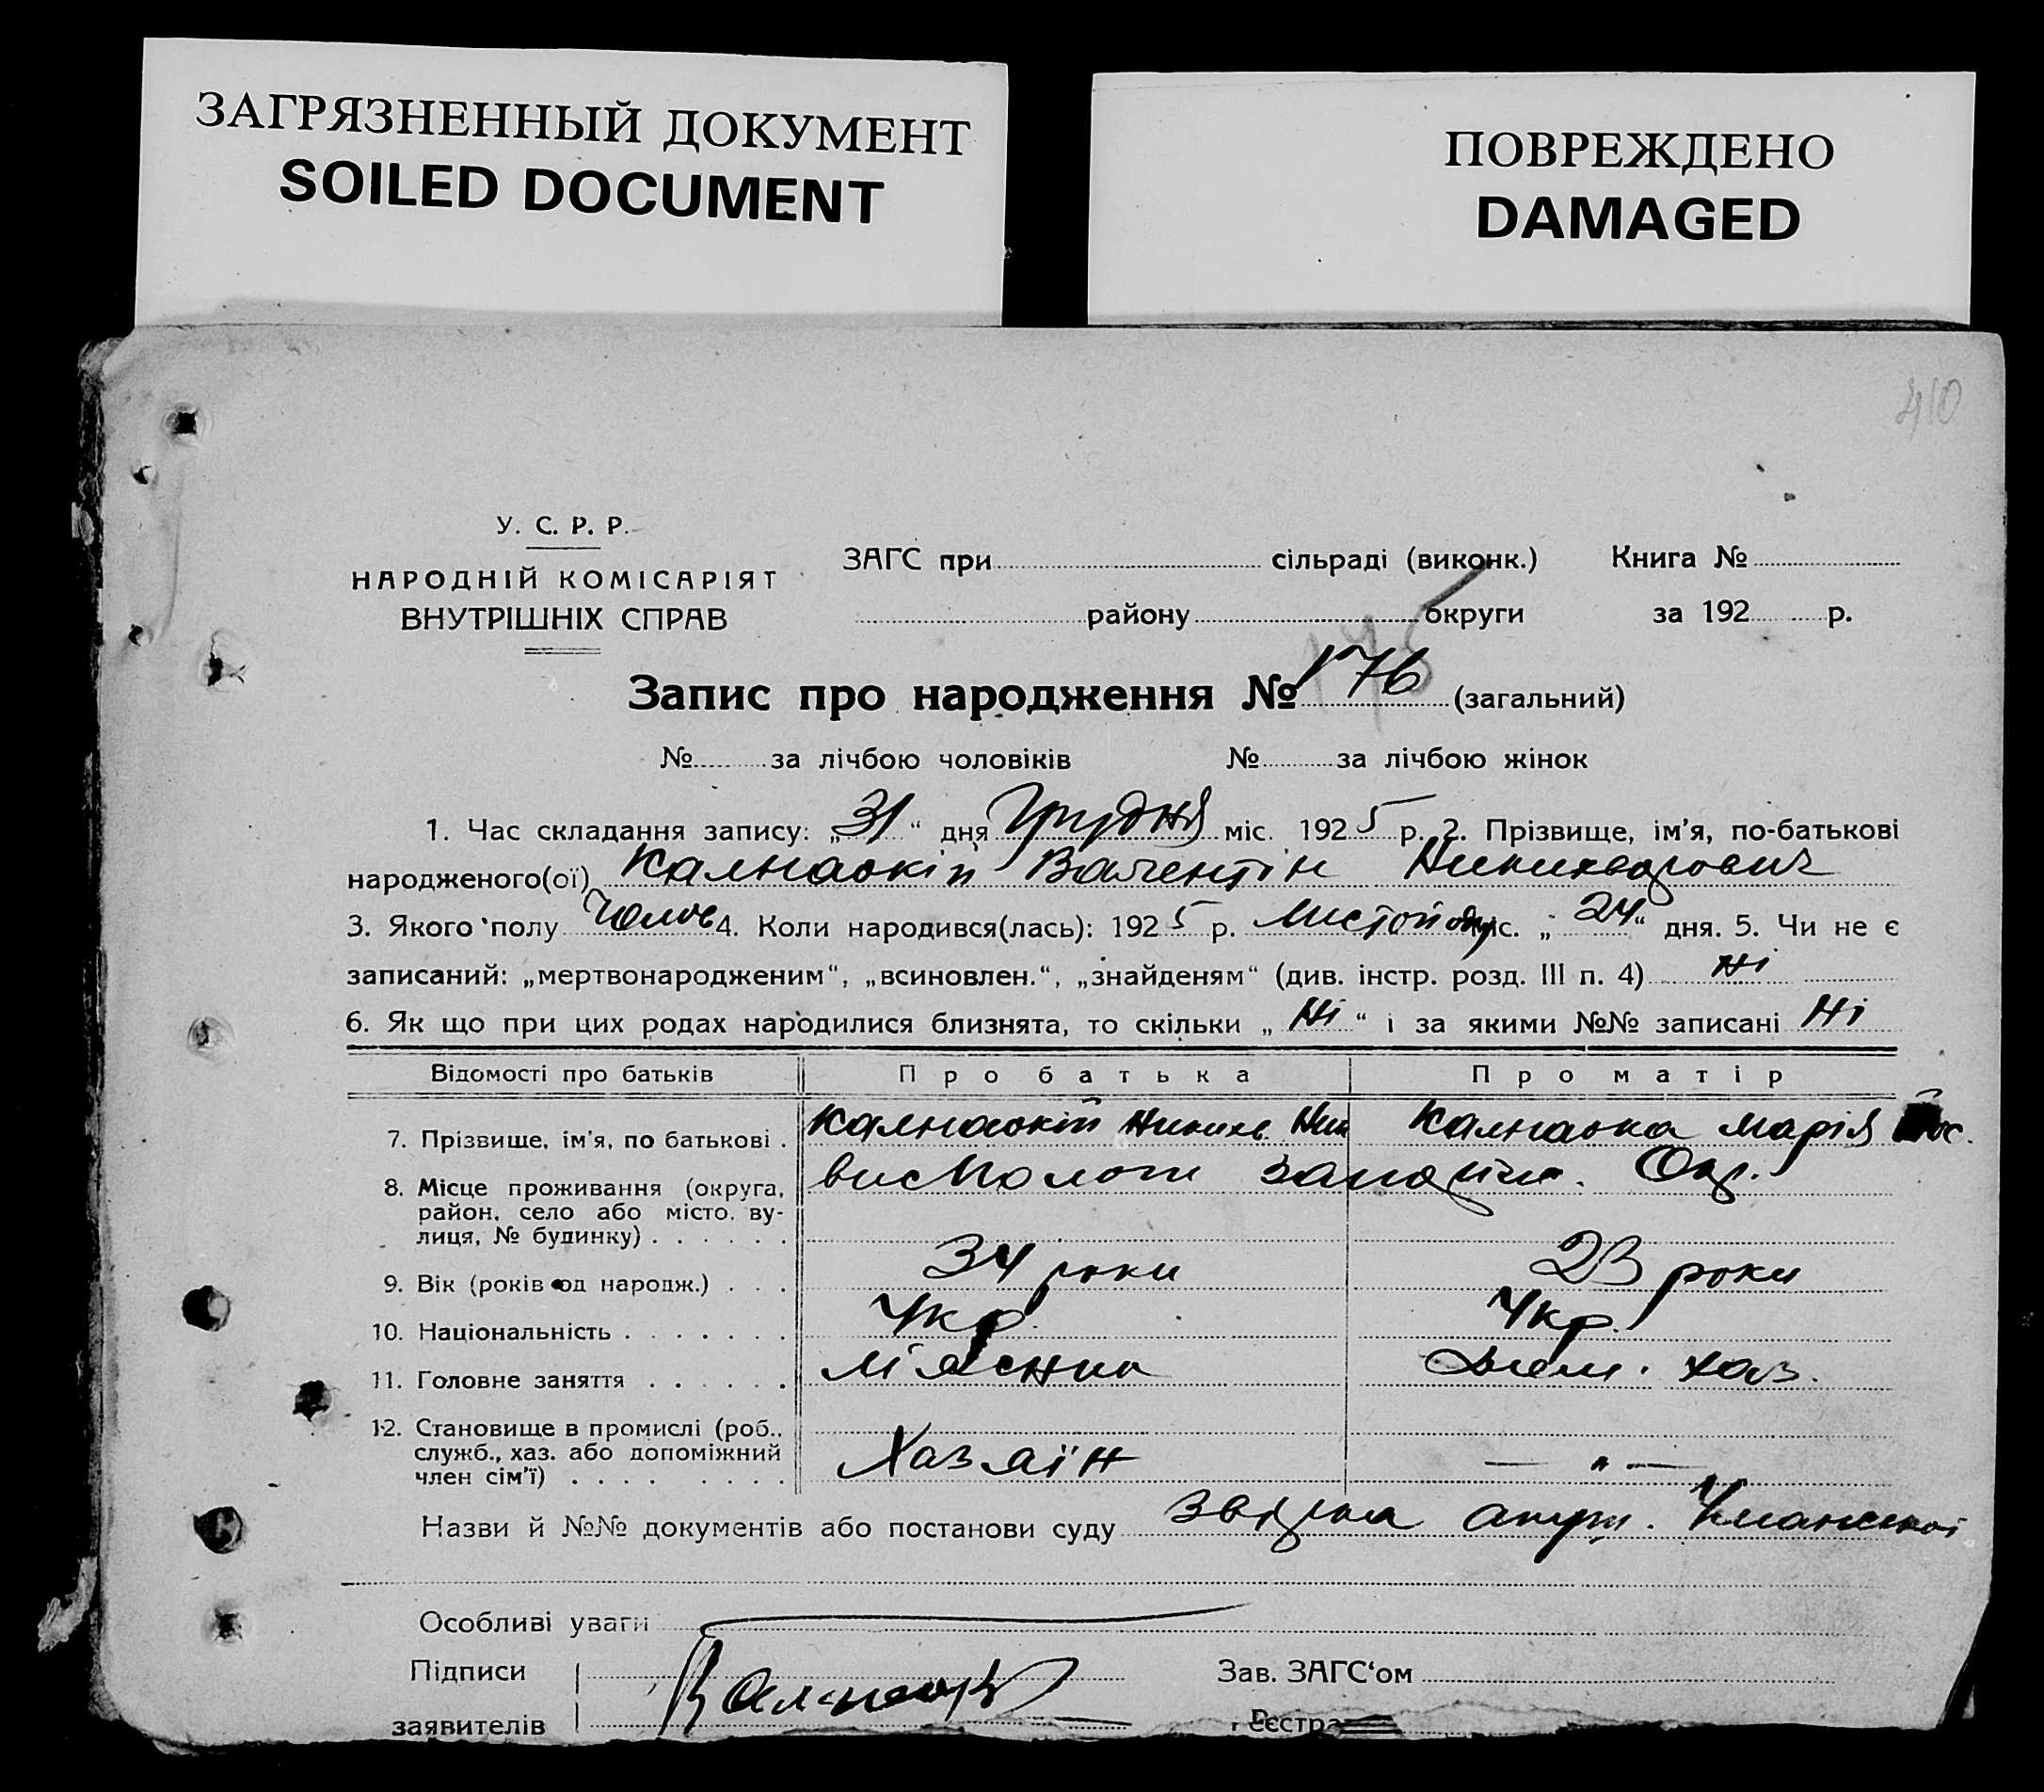 ЗАГРЯЗНЕННЫЙ ДОКУМЕНТ
SOILED DOCUMENT
ПОВРЕЖДЕНО
DAMAGED
410
У. С. Р. Р.
НАРОДНІЙ КОМІСАРІЯТ
ВНУТРІШНІХ СПРАВ
ЗАГС при сільраді (виконк.) Книга №
району округи за 192 р.
175
Запис про народження № 176 (загальний)
№ за лічбою чоловіків № за лічбою жінок
1. Час складання запису: „31“ дня Грудня міс. 1925 р. 2. Прізвище, ім'я, по-батькові
народженого(ої) Валентін
3. Якого полу Чолов 4. Коли народився(лась): 1925 р. міс. „24“ дня. 5. Чи не є
записаний: „мертвонародженим“, „всиновлен.“, „знайденям“ (див. інстр. розд. III п. 4) ні
6. Як що при цих родах народилися близнята, то скільки „Ні“ і за якими №№ записані Ні
Відомості про батьків Про батька Про матір
7. Прізвище, ім'я, по батькові . Марія
8. Місце проживання (округа,
район, село або місто, ву-
лиця, № будинку) . . . . . .
9. Вік (років од народж.) . . . 34 роки 23 роки
10. Національність . . . . . . . Укр. Укр.
11. Головне заняття . . . . . . хаз.
12. Становище в промислі (роб.,
служб., хаз. або допоміжний
член сім'ї) . . . . . . . . Хазяїн — „ —
Назви й №№ документів або постанови суду
Особливі уваги
Підписи Зав. ЗАГС'ом
заявителів